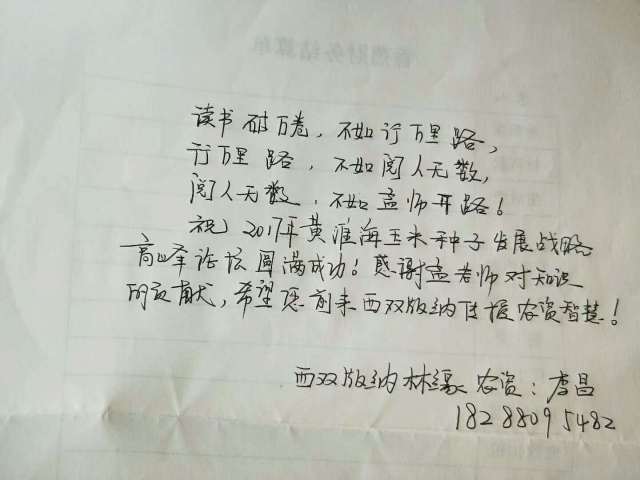 读书破万卷，不如行万里路，
行万里路，不如阅人无数，
阅人无数，不如孟师开路！
祝2017年黄淮海玉米种子发展战略
高峰论坛圆满成功！感谢孟老师对知识
的贡献，希望您前来西双版纳传授农资智慧！
西双版纳林缘农资：李昌
18288095482